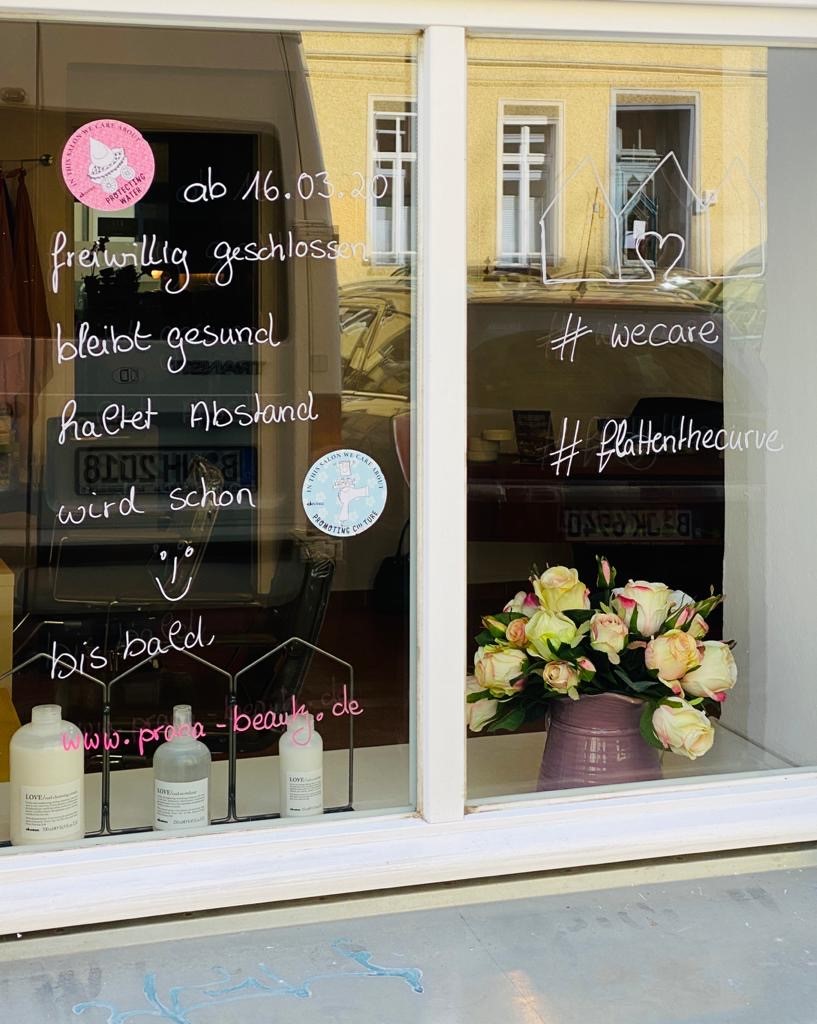 IN THIS SALON WE CARE ABOUT
PROTECTING
WATER
ab 16.03.20
freiwillig geschlossen
bleibt gesund
haltet Abstand
wird schon
bis bald,
# wecare
# flattenthecurve
IN THIS SALON WE CARE ABOUT
davines
PROMOTING CULTURE
TRANSIT
B NH 2018
B JK 6940
LOVE/
LOVE/
LOVE/
davines